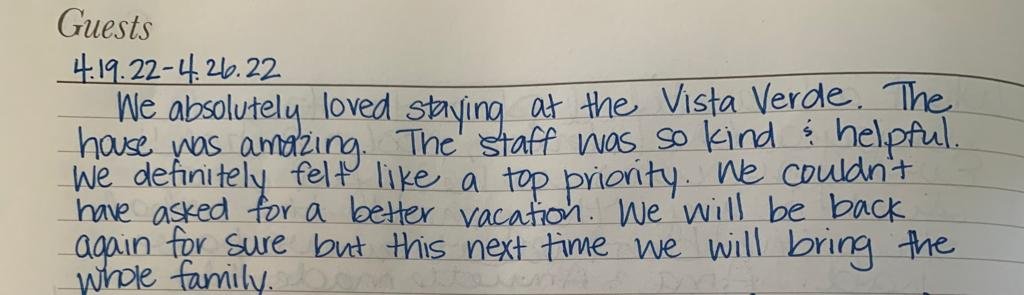 Guests
4.19.22-4.26.22
We absolutely loved staying at the Vista Verde. The
house was amazing. The staff was so kind & helpful.
We definitely felt like a top priority. We couldn't
have asked for a better vacation. We will be back
again for sure but this next time we will bring the
whole family.